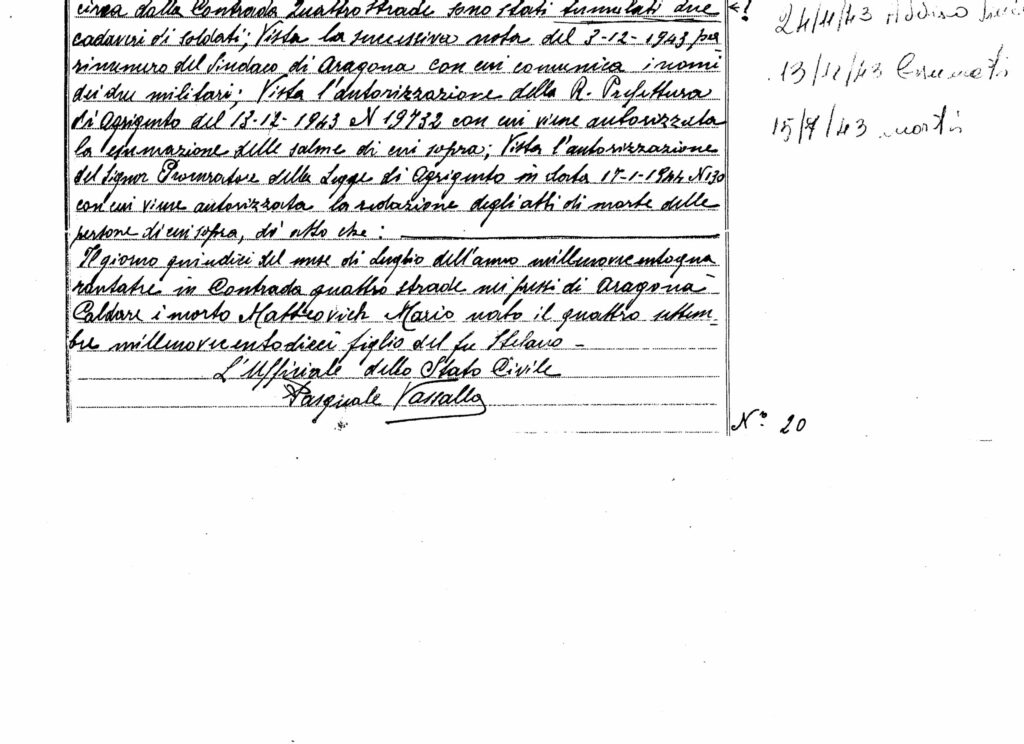 circa dalla Contrada Quattro Strade sono stati tumulati due
cadaveri di soldati; Vista la successiva nota del 3-12-1943 pa
ri numero del Sindaco di Aragona con cui comunica i nomi
dei due militari; Vista l'autorizzazione della R. Prefettura
di Agrigento del 13-12-1943 N 19732 con cui viene autorizzata
la esumazione delle salme di cui sopra; Vista l'autorizzazione
del Signor Procuratore della Legge di Agrigento in data 1944 N 130
con cui viene autorizzata la redazione degli atti di morte delle
persone di cui sopra, dò atto che:
Il giorno quindici del mese di Luglio dell'anno millenovecentoqua
rantatre in Contrada quattro strade nei pressi di Aragona
Caldare è morto Matteovich Mario nato il quattro settem-
bre millenovecentodieci figlio del fu Stefano -
L'Uffiziale dello Stato Civile
Pasquale Vassallo
←?
24/11/43
13/12/43 Esumati
15/7/43 morti
N° 20